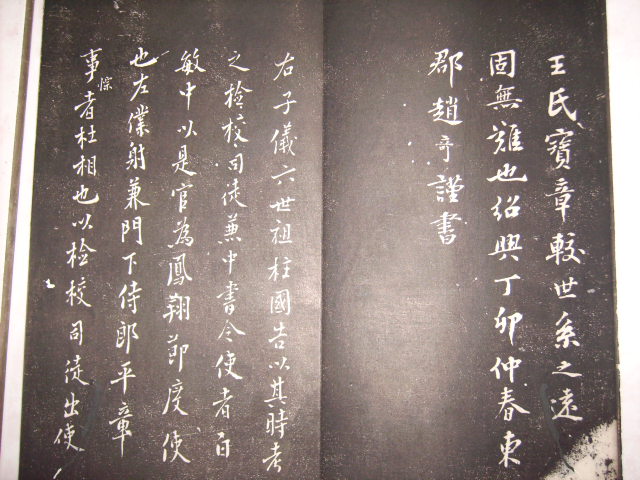 王氏寶章較世系之遠
固無難也紹興丁卯仲春東
郡趙奇謹書
右子儀六世祖柱國告以其時考
之檢校司徒兼中書令使者白
敏中以是官為鳳翔節度使
也左僕射兼門下侍郎平章
事者杜悰相也以檢校司徒出使